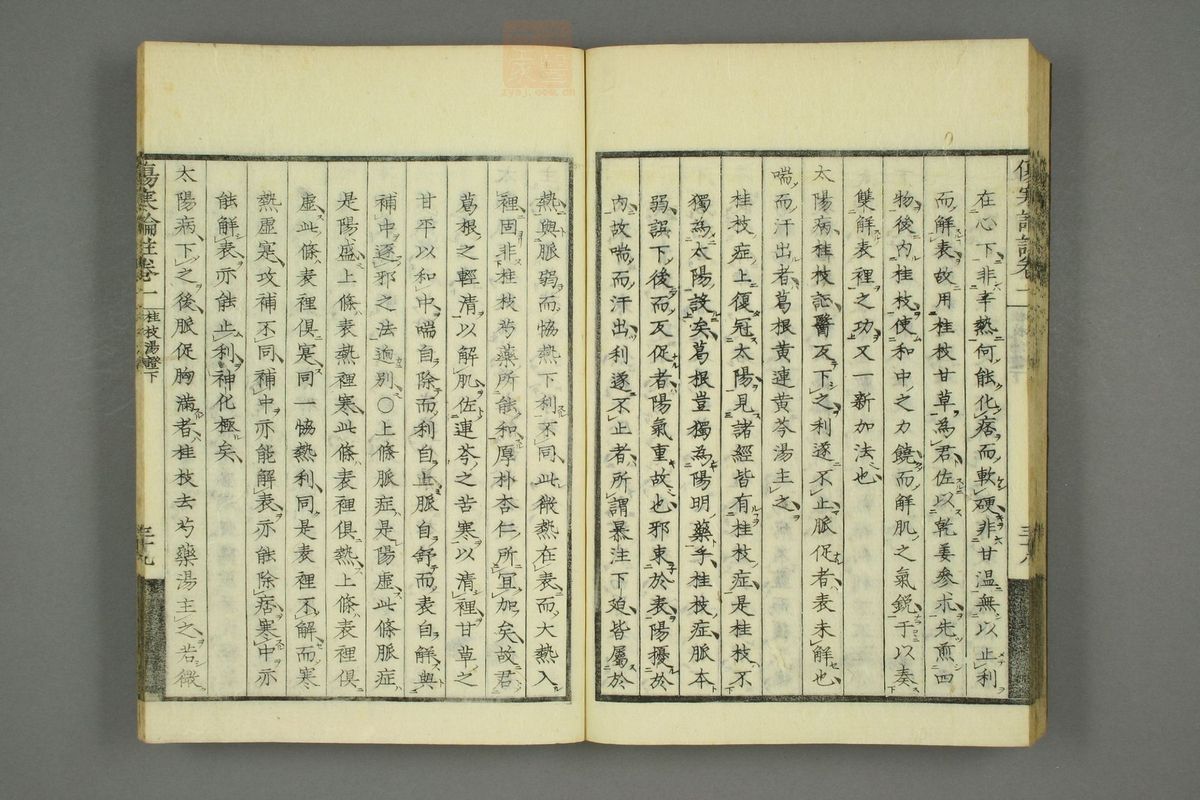 在心下非辛熱何能化痞而軟硬非甘温無以止利
而解表故用桂枝甘草為君佐以乾姜參朮先煎四
物後内桂枝使和中之力饒而解肌之氣鋭于以奏
雙解表裡之功又一新加法也
太陽病桂枝証醫反下之利遂不止脈促者表未解也
喘而汗出者葛根黄連黄芩湯主之
桂枝症上復冠太陽見諸經皆有桂枝症是桂枝不
獨為太陽設矣葛根豈獨為陽明藥乎桂枝症脈本
弱誤下後而反促者陽氣重故也邪束於表陽擾於
内故喘而汗出利遂不止者所謂暴注下迫皆屬於
熱與脈弱而恊熱下利不同此微熱在表而大熱入
裡固非桂枝芍藥所能和厚朴杏仁所宜加矣故君
葛根之輕清以解肌佐連芩之苦寒以清裡甘草之
甘平以和中喘自除而利自止脈自舒而表自解與
補中逐邪之法迥別〇上條脈症是陽虚此條脈症
是陽盛上條表熱裡寒此條表裡俱熱上條表裡俱
虚此條表裡倶寒同一恊熱利同是表裡不解而寒
熱虚寔攻補不同補中亦能解表亦能除痞寒中亦
能解表亦能止利神化極矣
太陽病下之後脈促胸滿者桂枝去芍藥湯主之若微
傷寒論註卷一
桂枝湯證下
三十八
傷寒論註卷一
桂枝湯證下
三十九
zysj.com.cn